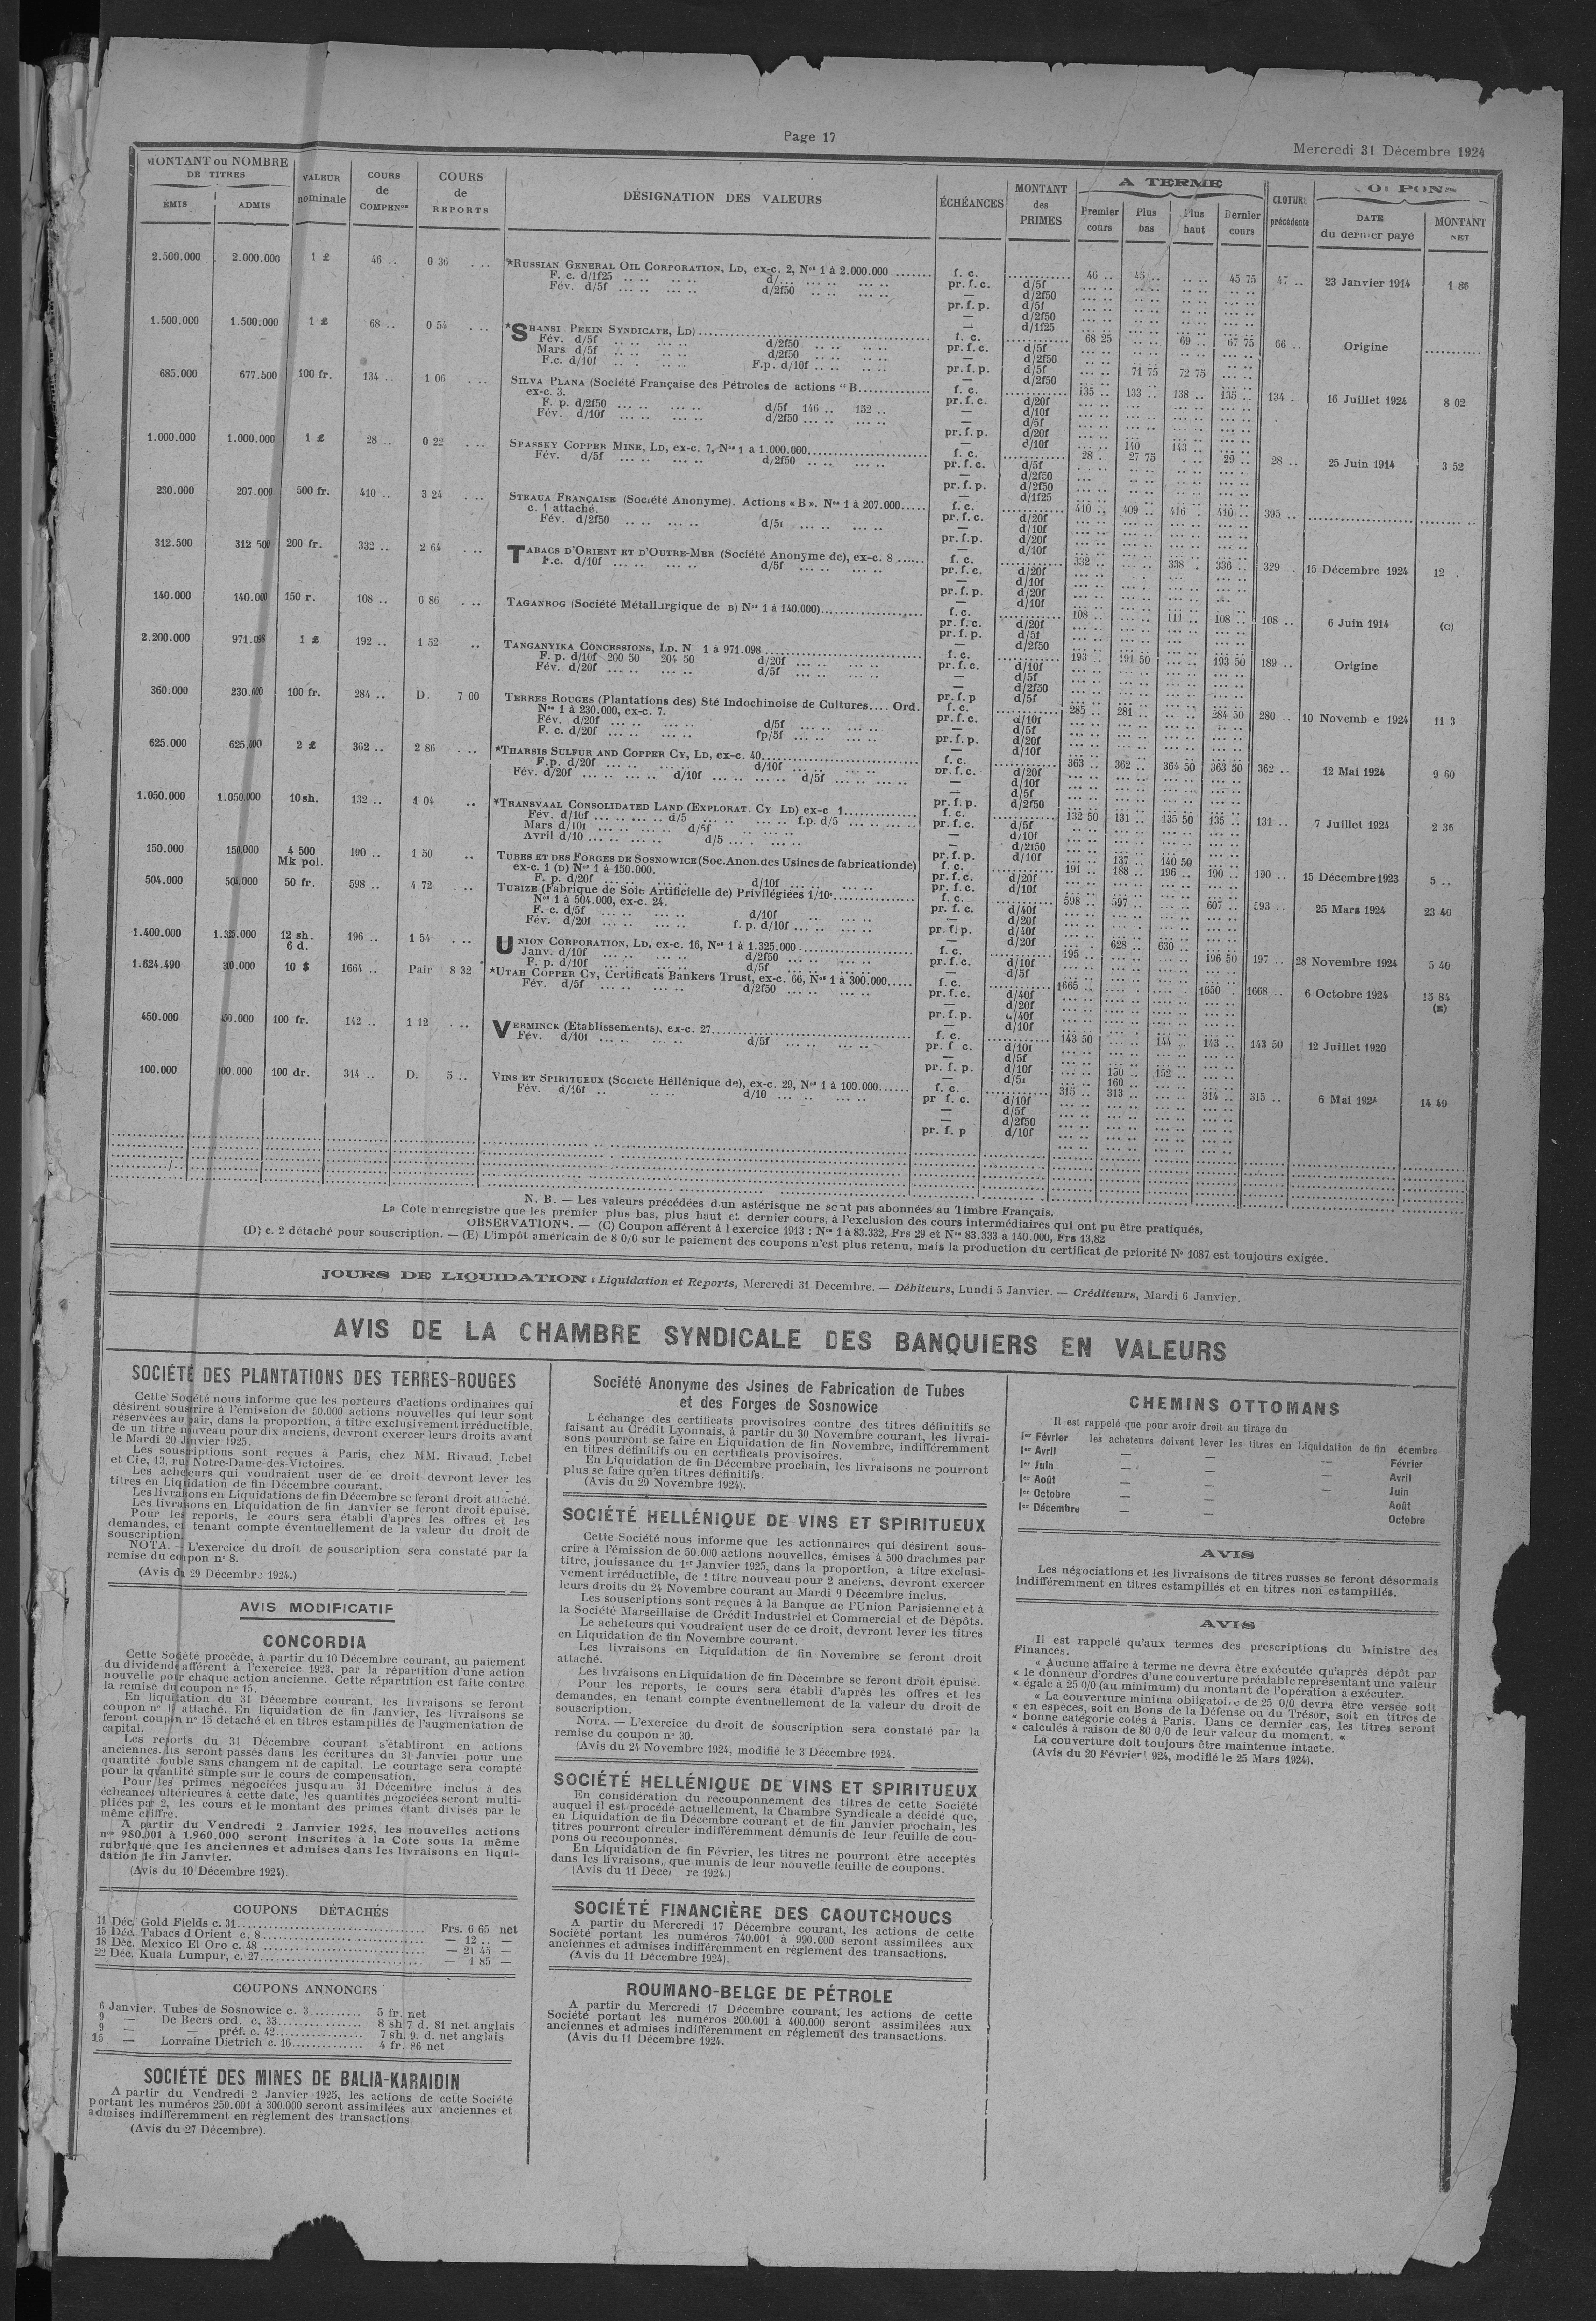 Page 17
Mercredi 31 Décembre 1924
MONTANT ou NOMBRE DE TITRES
ÉMIS ADMIS
VALEUR nominale
COURS de COMPENon
COURS de REPORTS
DÉSIGNATION DES VALEURS
ÉCHÉANCES
MONTANT des PRIMES
A TERME
Premier cours Plus bas Plus haut Dernier cours
CLOTURE précédente
DATE du dernier payé
MONTANT NET
2.500.000 2.000.000 1 £ 46 .. 0 36 *RUSSIAN GENERAL OIL CORPORATION, LD, ex-c. 2, Nos 1 à 2.000.000 f. c. 46 .. 45 .. 45 75 47 .. 23 Janvier 1914 1 86
F. c. d/1f25 d/...
Fév. d/5f d/2f50
1.500.000 1.500.000 1 £ 68 .. 0 54 *SHANSI PEKIN SYNDICATE, LD) f. c. 68 25 69 .. 67 75 66 .. Origine
Fév. d/5f d/2f50
Mars d/5f d/2f50
F.c. d/10f F.p. d/10f
71 75 72 75
685.000 677.500 100 fr. 134 .. 1 06 SILVA PLANA (Société Française des Pétroles de actions "B f. c. 135 133 .. 138 .. 135 .. 134 . 16 Juillet 1924 8 02
ex-c. 3.
F. p. d/2f50 d/5f 146 .. 152 ..
Fév. d/10f d/2f50
140 143 ..
1.000.000 1.000.000 1 £ 28 .. 0 22 SPASSKY COPPER MINE, LD, ex-c. 7, Nos 1 a 1.000.000 f. c. 28 . 27 75 29 .. 28 .. 25 Juin 1914 3 52
Fév. d/5f d/2f50
230.000 207.000 500 fr. 410 .. 3 24 STEAUA FRANÇAISE (Société Anonyme). Actions « B ». Nos 1 à 207.000 f. c. 410 .. 409 .. 416 . 410 .. 395 ..
c. 1 attaché.
Fév. d/2f50 d/5f
312.500 312 500 200 fr. 332 .. 2 64 TABACS D'ORIENT ET D'OUTRE-MER (Société Anonyme de), ex-c. 8 f. c. 332 .. 338 . 336 .. 329 . 15 Décembre 1924 12 .
F.c. d/10f d/5f
140.000 140.000 150 r. 108 .. 0 86 TAGANROG (Société Métallurgique de B) Nos 1 à 140.000) f. c. 108 .. 111 .. 108 .. 108 .. 6 Juin 1914 (C)
2.200.000 971.098 1 £ 192 .. 1 52 TANGANYIKA CONCESSIONS, LD. N 1 à 971.098 f. c. 193 .. 191 50 193 50 189 .. Origine
F. p. d/10f 200 50 204 50 d/20f
Fév. d/20f d/5f
360.000 230.000 100 fr. 284 .. D. 7 00 TERRES ROUGES (Plantations des) Sté Indochinoise de Cultures.... Ord. f. c. 285 .. 281 .. 284 50 280 .. 10 Novemb e 1924 11 3
Nos 1 à 230.000, ex-c. 7.
Fév. d/20f d/5f
F. c. d/20f fp/5f
625.000 625.000 2 £ 362 .. 2 86 *THARSIS SULFUR AND COPPER CY, LD, ex-c. 40 f. c. 363 .. 362 .. 364 50 363 50 362 .. 12 Mai 1924 9 60
F.p. d/20f d/10f
Fév. d/20f d/10f d/5f
1.050.000 1.050.000 10 sh. 132 .. 1 04 *TRANSVAAL CONSOLIDATED LAND (EXPLORAT. CY LD) ex-c 1 f. c. 132 50 131 .. 135 50 135 .. 131 .. 7 Juillet 1924 2 36
Fév. d/10f d/5 f.p. d/5
Mars d/10f d/5f
Avril d/10 d/5
137 .. 140 50
150.000 150.000 4 500 Mk pol. 190 .. 1 50 TUBES ET DES FORGES DE SOSNOWICE (Soc. Anon. des Usines de fabrication de) f. c. 191 .. 188 .. 196 .. 190 .. 190 .. 15 Décembre 1923 5 ..
ex-c. 1 (D) Nos 1 à 150.000.
F. p. d/20f d/10f
504.000 504.000 50 fr. 598 .. 4 72 TUBIZE (Fabrique de Soie Artificielle de) Privilégiées 1/10e f. c. 598 .. 597 .. 607 .. 593 .. 25 Mars 1924 23 40
Nos 1 à 504.000, ex-c. 24.
F. c. d/5f d/10f
Fév. d/20f f. p. d/10f
628 .. 630 ..
1.400.000 1.325.000 12 sh. 6 d. 196 .. 1 54 UNION CORPORATION, LD, ex-c. 16, Nos 1 à 1.325.000 f. c. 195 .. 196 50 197 .. 28 Novembre 1924 5 40
Janv. d/10f d/2f50
F. p. d/10f d/5f
1.624.490 300.000 10 $ 1664 .. Pair 8 32 *UTAH COPPER CY, Certificats Bankers Trust, ex-c. 66, Nos 1 à 300.000 f. c. 1665 .. 1650 .. 1668 .. 6 Octobre 1924 15 84 (E)
Fév. d/5f d/2f50
450.000 450.000 100 fr. 142 .. 1 12 VERMINCK (Etablissements), ex-c. 27 f. c. 143 50 144 .. 143 .. 143 50 12 Juillet 1920
Fév. d/10f d/5f
150 .. 152 ..
160 ..
100.000 100.000 100 dr. 314 .. D. 5 .. VINS ET SPIRITUEUX (Société Hellénique de), ex-c. 29, Nos 1 à 100.000 f. c. 315 .. 313 .. 314 .. 315 .. 6 Mai 1924 14 49
Fév. d/10f d/10
N. B. — Les valeurs précédées d'un astérisque ne sont pas abonnées au Timbre Français.
La Cote n'enregistre que les premier plus bas, plus haut et dernier cours, à l'exclusion des cours intermédiaires qui ont pu être pratiqués,
OBSERVATIONS. — (C) Coupon afférent à l'exercice 1913 : Nos 1 à 83.332, Frs 29 et Nos 83.333 à 140.000, Frs 13,82
(D) c. 2 détaché pour souscription. — (E) L'impôt américain de 8 0/0 sur le paiement des coupons n'est plus retenu, mais la production du certificat de priorité No 1087 est toujours exigée.
JOURS DE LIQUIDATION : Liquidation et Reports, Mercredi 31 Décembre. — Débiteurs, Lundi 5 Janvier. — Créditeurs, Mardi 6 Janvier.
AVIS DE LA CHAMBRE SYNDICALE DES BANQUIERS EN VALEURS
SOCIÉTÉ DES PLANTATIONS DES TERRES-ROUGES
Cette Société nous informe que les porteurs d'actions ordinaires qui
désirent souscrire à l'émission de 50.000 actions nouvelles qui leur sont
réservées au pair, dans la proportion, à titre exclusivement irréductible,
de un titre nouveau pour dix anciens, devront exercer leurs droits avant
le Mardi 20 Janvier 1925.
Les souscriptions sont reçues à Paris, chez MM. Rivaud, Lebel
et Cie, 13, rue Notre-Dame-des-Victoires.
Les acheteurs qui voudraient user de ce droit devront lever les
titres en Liquidation de fin Décembre courant.
Les livraisons en Liquidations de fin Décembre se feront droit attaché.
Les livraisons en Liquidation de fin Janvier se feront droit épuisé.
Pour les reports, le cours sera établi d'après les offres et les
demandes, en tenant compte éventuellement de la valeur du droit de
souscription.
NOTA. — L'exercice du droit de souscription sera constaté par la
remise du coupon no 8.
(Avis du 29 Décembre 1924.)
AVIS MODIFICATIF
CONCORDIA
Cette Société procède, à partir du 10 Décembre courant, au paiement
du dividende afférent à l'exercice 1923, par la répartition d'une action
nouvelle pour chaque action ancienne. Cette répartition est faite contre
la remise du coupon no 15.
En liquidation du 31 Décembre courant, les livraisons se feront
coupon no 15 attaché. En liquidation de fin Janvier, les livraisons se
feront coupon no 15 détaché et en titres estampillés de l'augmentation de
capital.
Les reports du 31 Décembre courant s'établiront en actions
anciennes. Ils seront passés dans les écritures du 31 Janvier pour une
quantité double sans changem nt de capital. Le courtage sera compté
pour la quantité simple sur le cours de compensation.
Pour les primes négociées jusqu'au 31 Décembre inclus à des
échéances ultérieures à cette date, les quantités négociées seront multi-
pliées par 2, les cours et le montant des primes étant divisés par le
même chiffre.
A partir du Vendredi 2 Janvier 1925, les nouvelles actions
nos 980.001 à 1.960.000 seront inscrites à la Cote sous la même
rubrique que les anciennes et admises dans les livraisons en liqui-
dation de fin Janvier.
(Avis du 10 Décembre 1924).
COUPONS DÉTACHÉS
11 Déc. Gold Fields c. 31 Frs. 6 65 net
15 Déc. Tabacs d'Orient c. 8 — 12 .. —
18 Déc. Mexico El Oro c. 48 — 21 45 —
22 Déc. Kuala Lumpur, c. 27 — 1 85 —
COUPONS ANNONCES
6 Janvier. Tubes de Sosnowice c. 3 5 fr. net
9 — De Beers ord. c. 33 8 sh 7 d. 81 net anglais
9 — — préf. c. 42 7 sh. 9. d. net anglais
15 — Lorraine Dietrich c. 16 4 fr. 86 net
SOCIÉTÉ DES MINES DE BALIA-KARAIDIN
A partir du Vendredi 2 Janvier 1925, les actions de cette Société
portant les numéros 250.001 à 300.000 seront assimilées aux anciennes et
admises indifféremment en règlement des transactions
(Avis du 27 Décembre).
Société Anonyme des Usines de Fabrication de Tubes
et des Forges de Sosnowice
L'échange des certificats provisoires contre des titres définitifs se
faisant au Crédit Lyonnais, à partir du 30 Novembre courant, les livrai-
sons pourront se faire en Liquidation de fin Novembre, indifféremment
en titres définitifs ou en certificats provisoires.
En Liquidation de fin Décembre prochain, les livraisons ne pourront
plus se faire qu'en titres définitifs.
(Avis du 29 Novembre 1924).
SOCIÉTÉ HELLÉNIQUE DE VINS ET SPIRITUEUX
Cette Société nous informe que les actionnaires qui désirent sous-
crire à l'émission de 50.000 actions nouvelles, émises à 500 drachmes par
titre, jouissance du 1er Janvier 1925, dans la proportion, à titre exclusi-
vement irréductible, de 1 titre nouveau pour 2 anciens, devront exercer
leurs droits du 24 Novembre courant au Mardi 9 Décembre inclus.
Les souscriptions sont reçues à la Banque de l'Union Parisienne et à
la Société Marseillaise de Crédit Industriel et Commercial et de Dépôts.
Le acheteurs qui voudraient user de ce droit, devront lever les titres
en Liquidation de fin Novembre courant.
Les livraisons en Liquidation de fin Novembre se feront droit
attaché.
Les livraisons en Liquidation de fin Décembre se feront droit épuisé.
Pour les reports, le cours sera établi d'après les offres et les
demandes, en tenant compte éventuellement de la valeur du droit de
souscription.
NOTA. — L'exercice du droit de souscription sera constaté par la
remise du coupon no 30.
(Avis du 24 Novembre 1924, modifié le 3 Décembre 1924.
SOCIÉTÉ HELLÉNIQUE DE VINS ET SPIRITUEUX
En considération du recouponnement des titres de cette Société
auquel il est procédé actuellement, la Chambre Syndicale a décidé que,
en Liquidation de fin Décembre courant et de fin Janvier prochain, les
titres pourront circuler indifféremment démunis de leur feuille de cou-
pons ou recouponnés.
En Liquidation de fin Février, les titres ne pourront être acceptés
dans les livraisons, que munis de leur nouvelle feuille de coupons.
(Avis du 11 Décem re 1924.)
SOCIÉTÉ FINANCIÈRE DES CAOUTCHOUCS
A partir du Mercredi 17 Décembre courant, les actions de cette
Société portant les numéros 740.001 à 990.000 seront assimilées aux
anciennes et admises indifféremment en règlement des transactions.
(Avis du 11 Décembre 1924).
ROUMANO-BELGE DE PÉTROLE
A partir du Mercredi 17 Décembre courant, les actions de cette
Société portant les numéros 200.001 à 400.000 seront assimilées aux
anciennes et admises indifféremment en réglement des transactions.
(Avis du 11 Décembre 1924.
CHEMINS OTTOMANS
Il est rappelé que pour avoir droit au tirage du
1er Février les acheteurs doivent lever les titres en Liquidation de fin écembre
1er Avril — — — Février
1er Juin — — — Avril
1er Août — — — Juin
1er Octobre — — Août
1er Décembre — — Octobre
AVIS
Les négociations et les livraisons de titres russes se feront désormais
indifféremment en titres estampillés et en titres non estampillés.
AVIS
Il est rappelé qu'aux termes des prescriptions du Ministre des
Finances.
« Aucune affaire à terme ne devra être exécutée qu'après dépôt par
« le donneur d'ordres d'une couverture préalable représentant une valeur
« égale à 25 0/0 (au minimum) du montant de l'opération à exécuter.
« La couverture minima obligatoire de 25 0/0 devra être versée soit
« en espèces, soit en Bons de la Défense ou du Trésor, soit en titres de
« bonne catégorie cotés à Paris. Dans ce dernier cas, les titres seront
« calculés à raison de 80 0/0 de leur valeur du moment. «
La couverture doit toujours être maintenue intacte.
(Avis du 20 Février 1924, modifié le 25 Mars 1924).